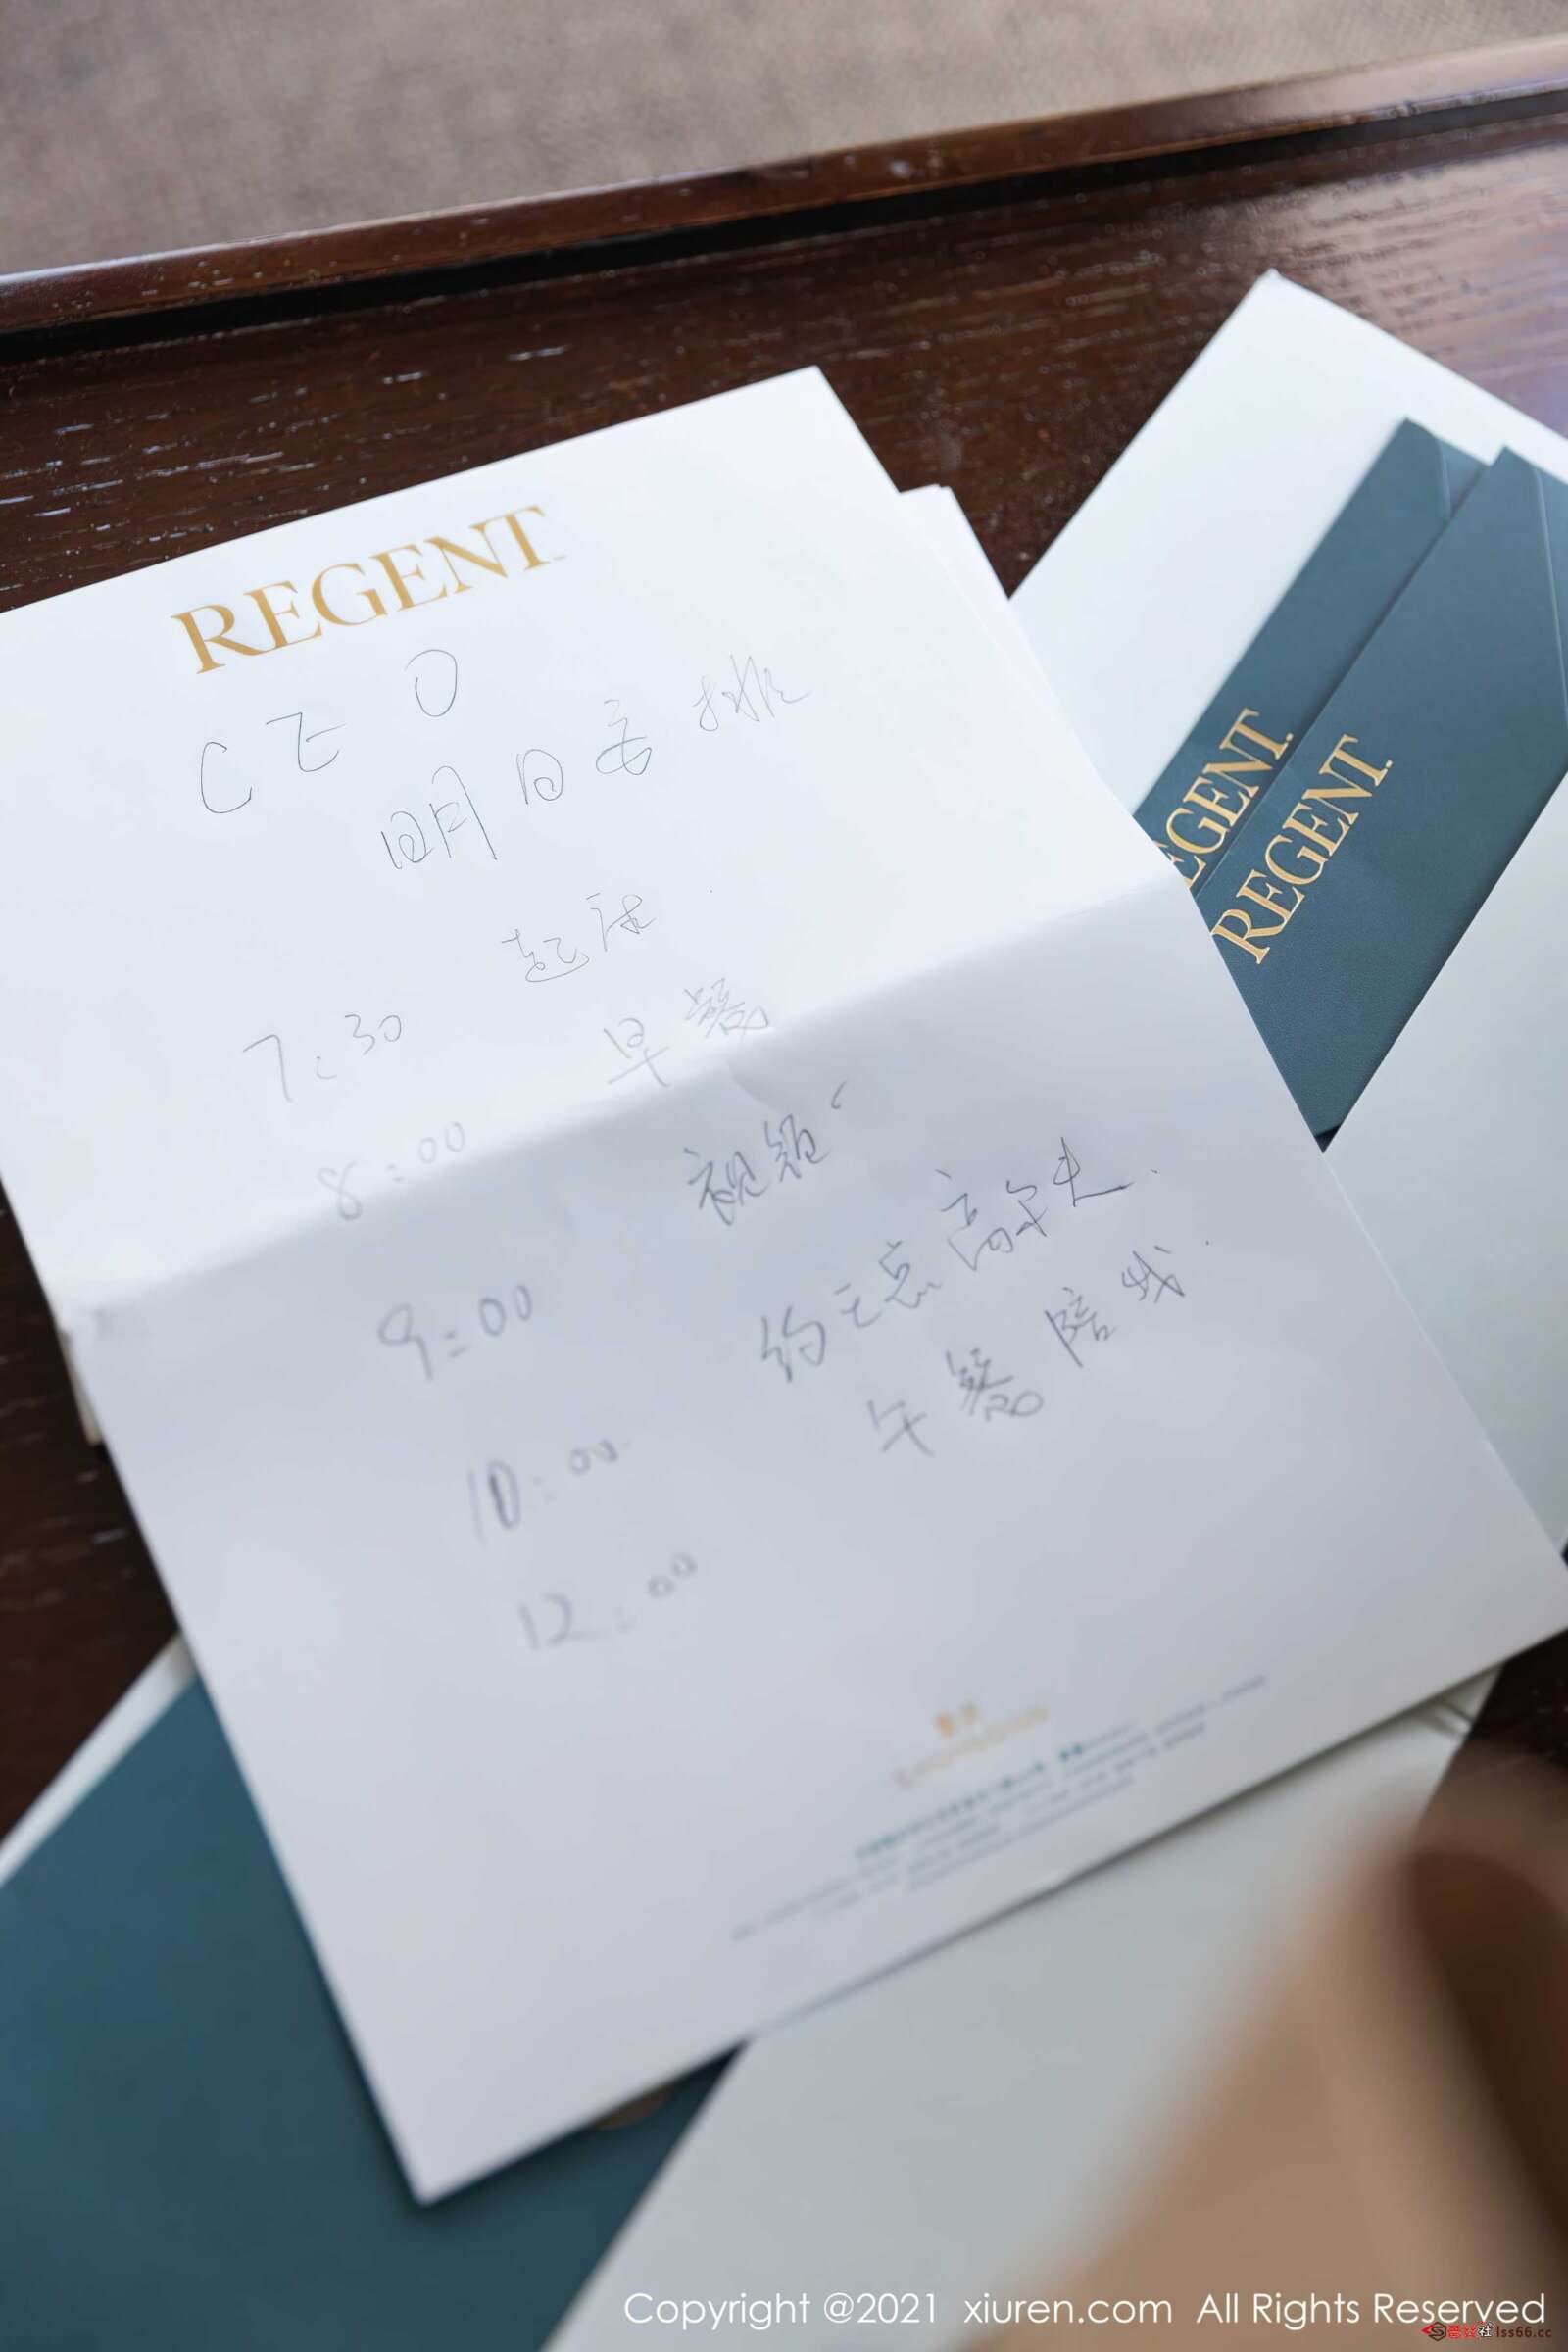 REGENT
CEO
明日安排
7:30 起床
8:00 早餐
9:00 视频
10:00 约王总高尔夫
12:00 午餐陪我
REGENT
REGENT
Copyright @2021 xiuren.com All Rights Reserved
lss66.cc